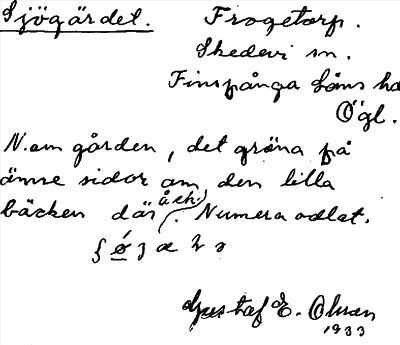 Sjögärdet. Frogetorp.
Skedevi sn.
Finspånga läns hd
Ögl.
N. om gården, det gröna på
ömse sidor om den lilla
bäcken där åch. Numera odlat.
Gustaf E. Olsson
1933